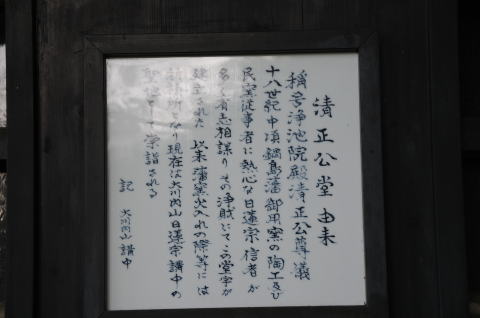 清正公堂由来
稱号浄池院殿清正公尊儀
十八世紀中頃鍋島藩御用窯の陶工及び
民窯従事者に熱心な日蓮宗信者が
多く有志相謀り その浄財にてこの堂宇が
建立された 以来藩窯火入れの際等には
祈祷所となり現在は大川内山日蓮宗講中の
聖地として崇詣される
記 大川内山講中